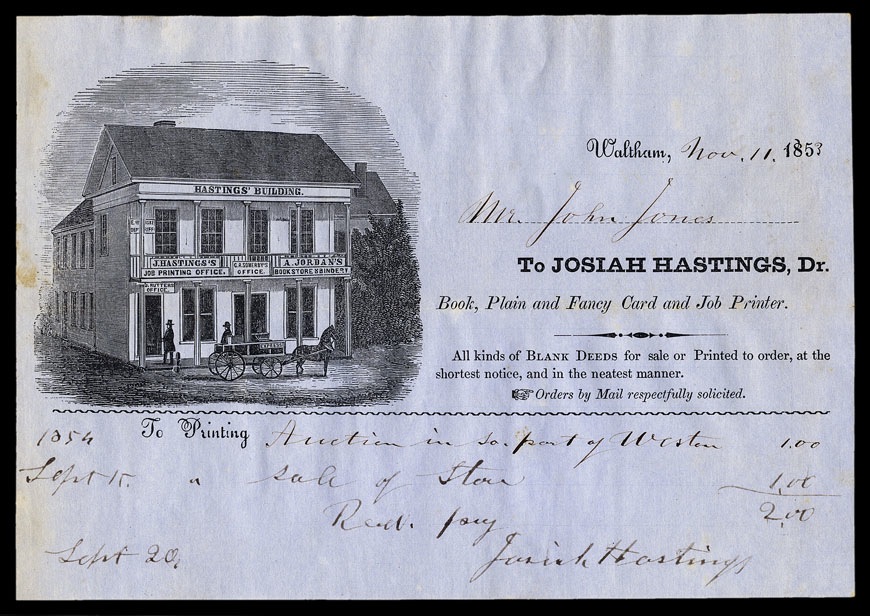 HASTINGS' BUILDING.
J. HASTINGS'S
JOB PRINTING OFFICE.
OFFICE.
A. JORDAN'S
BOOKSTORE & BINDERY
OFFICE.
Waltham, Nov. 11, 1853
Mr. John Jones
To JOSIAH HASTINGS, Dr.
Book, Plain and Fancy Card and Job Printer.
All kinds of BLANK DEEDS for sale or Printed to order, at the
shortest notice, and in the neatest manner.
☞ Orders by Mail respectfully solicited.
1854 To Printing Auction in So. part of Weston 1.00
Sept 15. " sale of Stove 1.00
2.00
Recd. pay
Sept 20, Josiah Hastings